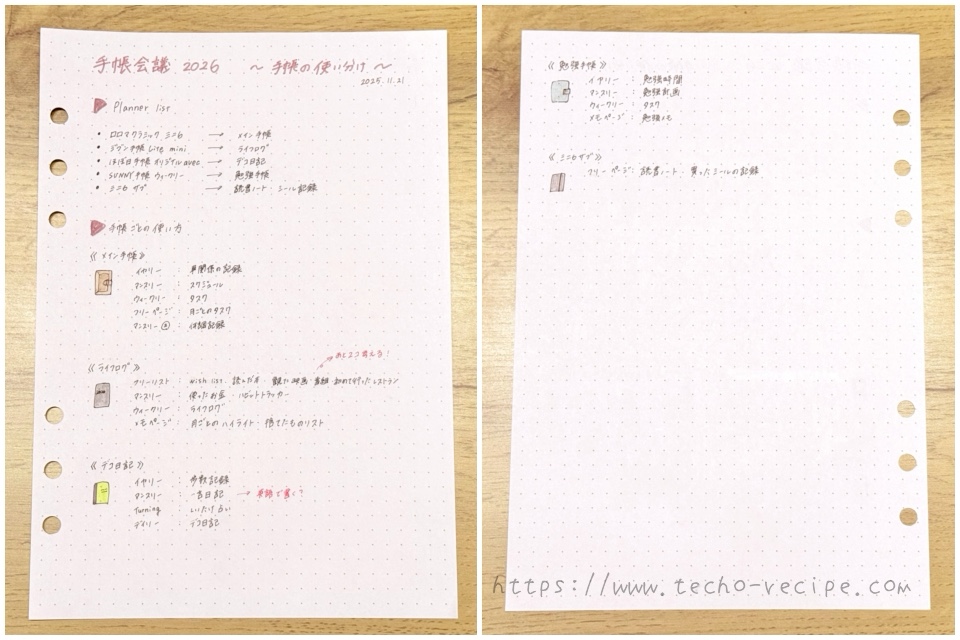 手帳会議 2026 ～ 手帳の使い分け ～
2025.11.21
Planner list
• ロロマクラシック ミニ6 → メイン手帳
• ジブン手帳 Lite mini → ライフログ
• ほぼ日手帳 オリジナル avec → デコ日記
• SUNNY手帳 ウィークリー → 勉強手帳
• ミニ6 サブ → 読書ノート・シール記録
手帳ごとの使い方
《メイン手帳》
イヤリー : 関係の記録
マンスリー : スケジュール
ウィークリー : タスク
フリーページ : 月ごとのタスク
マンスリー : 体調記録
あと2コ考える!
《ライフログ》
フリーリスト : wish list・読んだ本・観た映画・番組・初めて行ったレストラン
マンスリー : 使ったお金・ハビットトラッカー
ウィークリー : ライフログ
メモページ : 月ごとのハイライト・捨てたものリスト
《デコ日記》
イヤリー : 歩数記録
マンスリー : 一言日記 → 英語で書く?
Turning : いいだけ占い
デイリー : デコ日記
《勉強手帳》
イヤリー : 勉強時間
マンスリー : 勉強計画
ウィークリー : タスク
メモページ : 勉強メモ
《ミニ6サブ》
フリーページ : 読書ノート・買ったシールの記録
https://www.techo-recipe.com